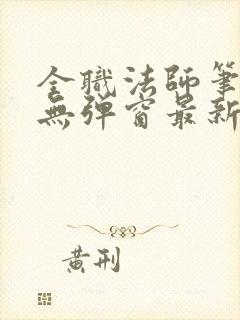 全職法師筆
無彈窗最新
黄刑